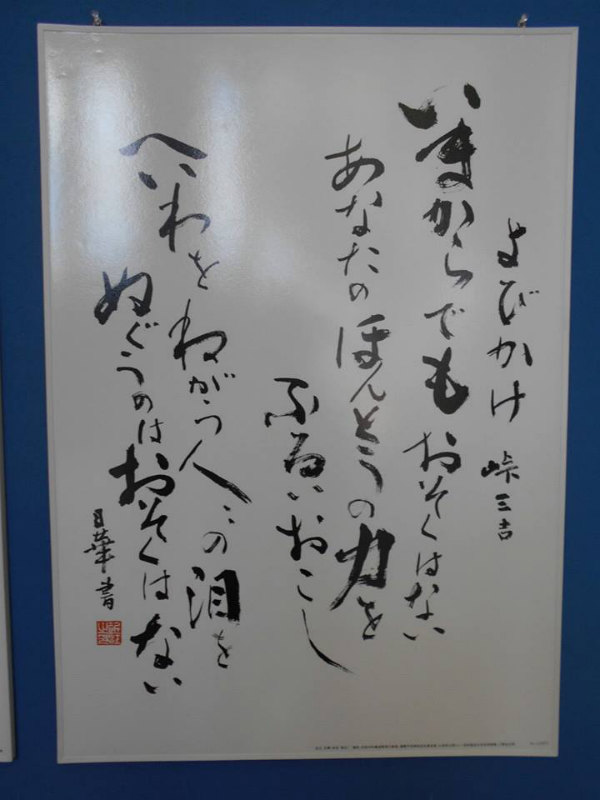 よびかけ 峠三吉
いまからでもおそくはない
あなたのほんとうの力を
ふるいおこし
へいわをねがう人々の泪を
ぬぐうのはおそくはない
書